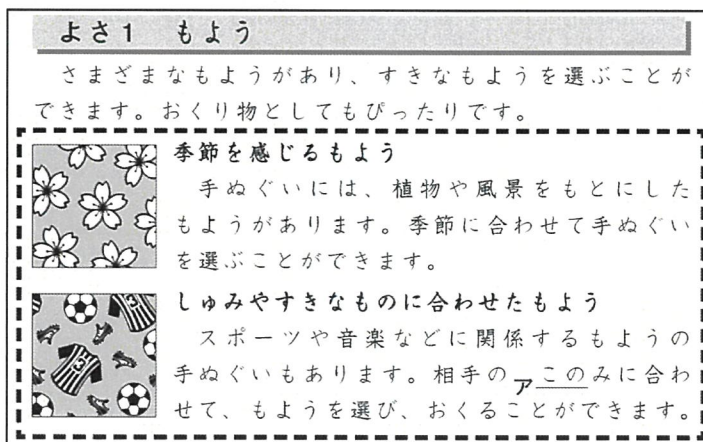 よさ1 もよう
さまざまなもようがあり、すきなもようを選ぶことが
できます。おくり物としてもぴったりです。
季節を感じるもよう
手ぬぐいには、植物や風景をもとにした
もようがあります。季節に合わせて手ぬぐい
を選ぶことができます。
しゅみやすきなものに合わせたもよう
スポーツや音楽などに関係するもようの
手ぬぐいもあります。相手のアこのみに合わ
せて、もようを選び、おくることができます。
3
3